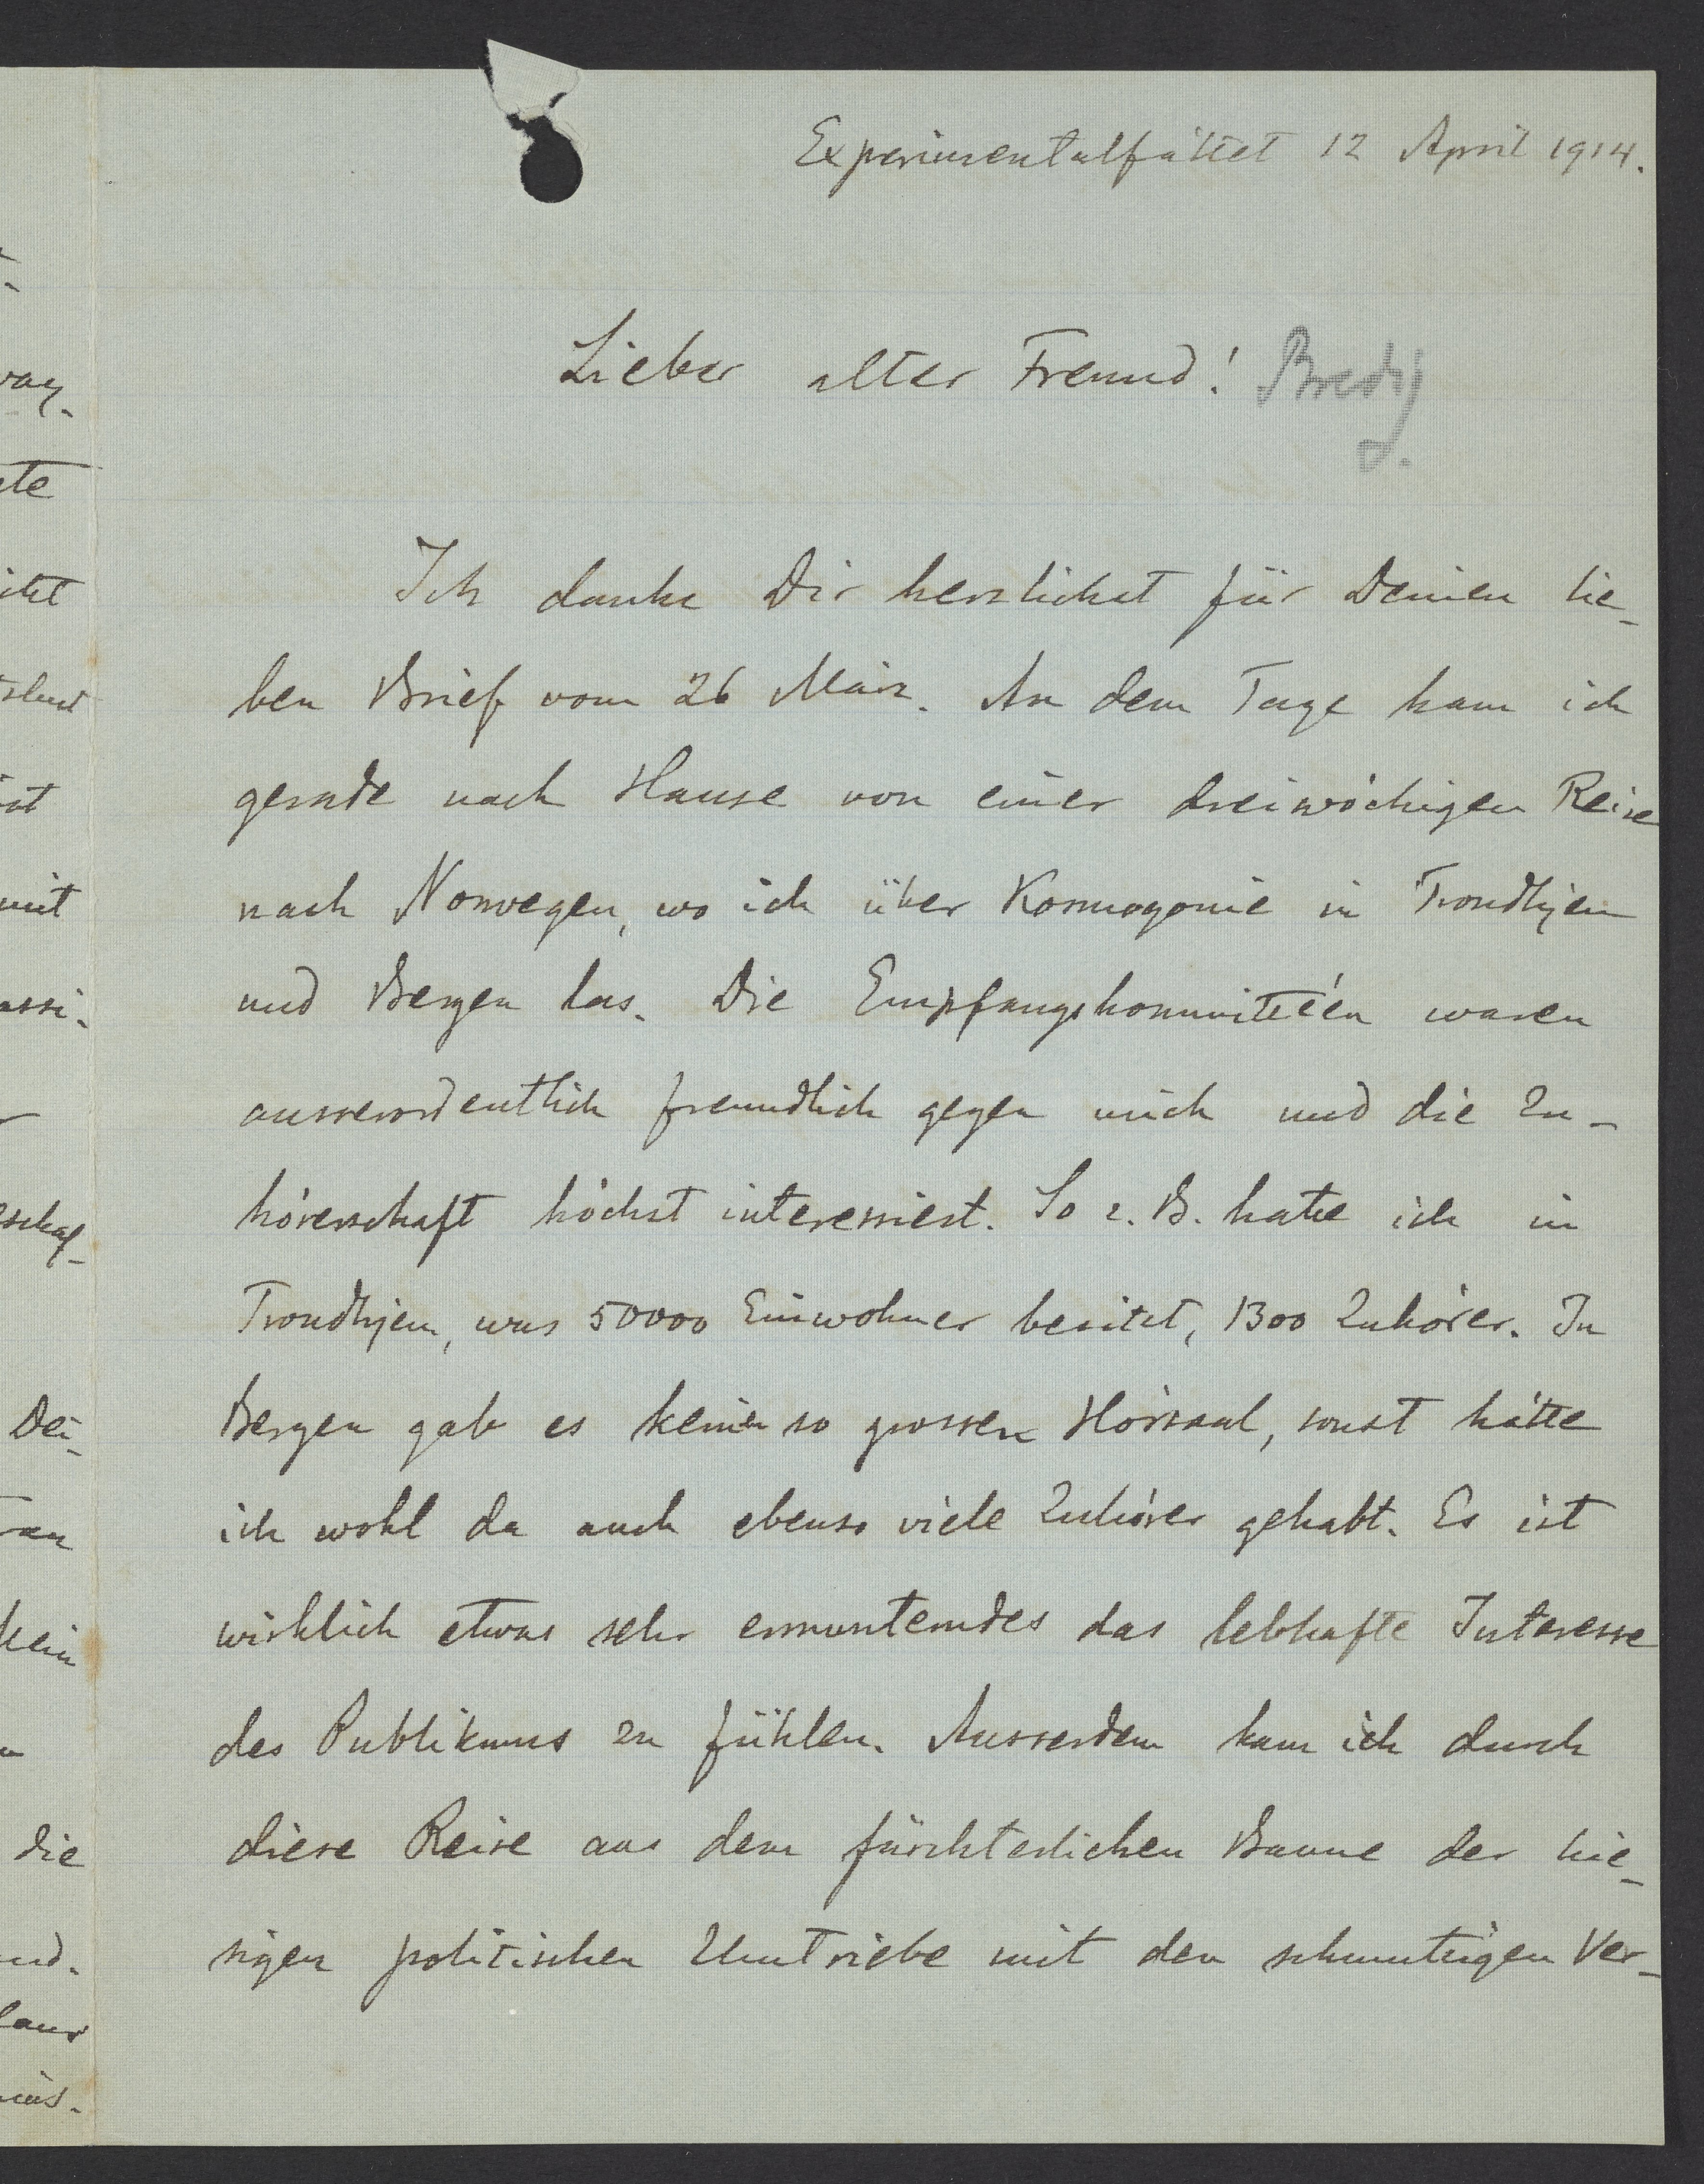 Experimentalfältet 12 April 1914.
Lieber alter Freund! Bredig
Ich danke Dir herzlichst für Deinen lie-
ben Brief vom 26 März. An dem Tage kam ich
gerade nach Hause von einer dreiwöchigen Reise
nach Norwegen, wo ich über Kosmogonie in Trondhjem
und Bergen las. Die Empfangskommittéen waren
ausserordentlich freundlich gegen mich und die Zu-
hörerschaft höchst interessiert. So z. B. hatte ich in
Trondhjem, was 50000 Einwohner besitzt, 1300 Zuhörer. In
Bergen gab es keinen so grossen Hörsaal, sonst hätte
ich wohl da auch ebenso viele Zuhörer gehabt. Es ist
wirklich etwas sehr ermunterndes das lebhafte Interesse
des Publikums zu fühlen. Ausserdem kam ich durch
diese Reise aus dem fürchterlichen Banne der hie-
sigen politischen Umtriebe mit den schmutzigen Ver-